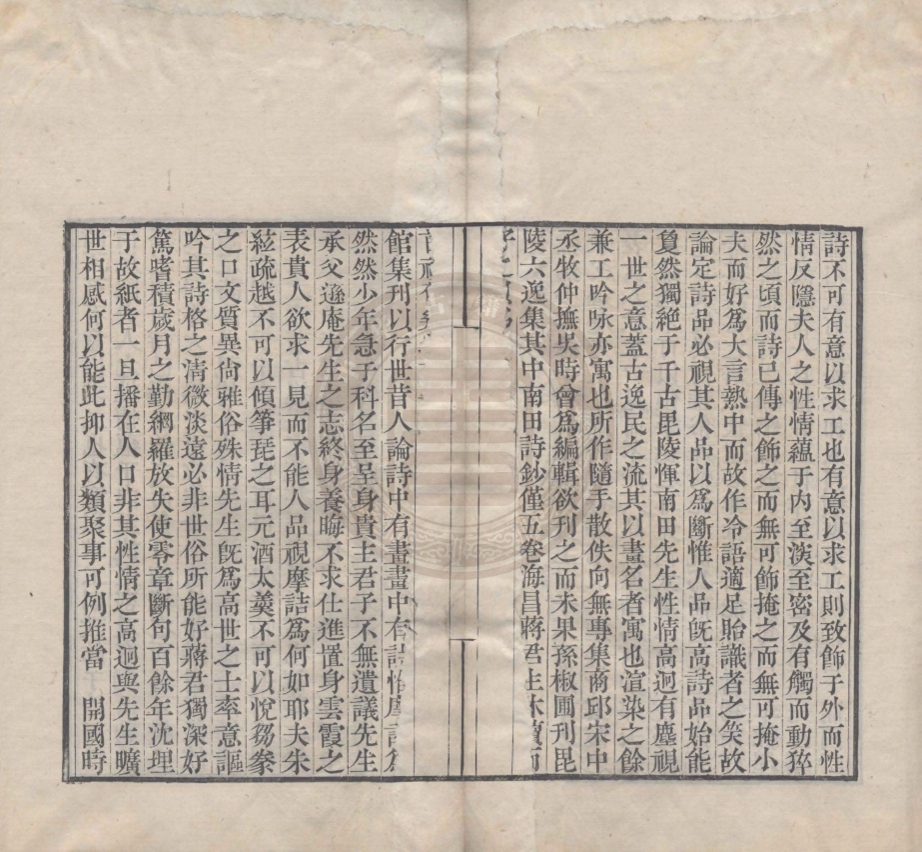 詩不可有意以求工也有意以求工則致飾于外而性
情反隱夫人之性情蘊于内至淡至密及有觸而動猝
然之頃而詩已傳之飾之而無可飾掩之而無可掩小
夫而好爲大言熱中而故作冷語適足貽識者之笑故
論定詩品必視其人品以爲斷惟人品旣高詩品始能
敻然獨絶于千古毘陵惲南田先生性情高迥有塵視
一世之意蓋古逸民之流其以畫名者寓也渲染之餘
兼工吟咏亦寓也所作隨手散佚向無專集商邱宋中
丞牧仲撫吳時曾爲編輯欲刊之而未果孫椒圃刊毘
陵六逸集其中南田詩鈔僅五卷海昌蔣君生沐
館集刊以行世昔人論詩中有畫畫中有詩惟摩詰爲
然然少年急于科名至呈身貴主君子不無遺議先生
承父遜庵先生之志終身養晦不求仕進置身雲霞之
表貴人欲求一見而不能人品視摩詰爲何如耶夫朱
絃疏越不可以傾箏琵之耳元酒太羹不可以悅芻豢
之口文質異尙雅俗殊情先生旣爲高世之士率意謳
吟其詩格之清微淡遠必非世俗所能好蔣君獨深好
篤嗜積歲月之勤網羅放失使零章斷句百餘年沈埋
于故紙者一旦播在人口非其性情之高迥與先生曠
世相感何以能此抑人以類聚事可例推當 開國時